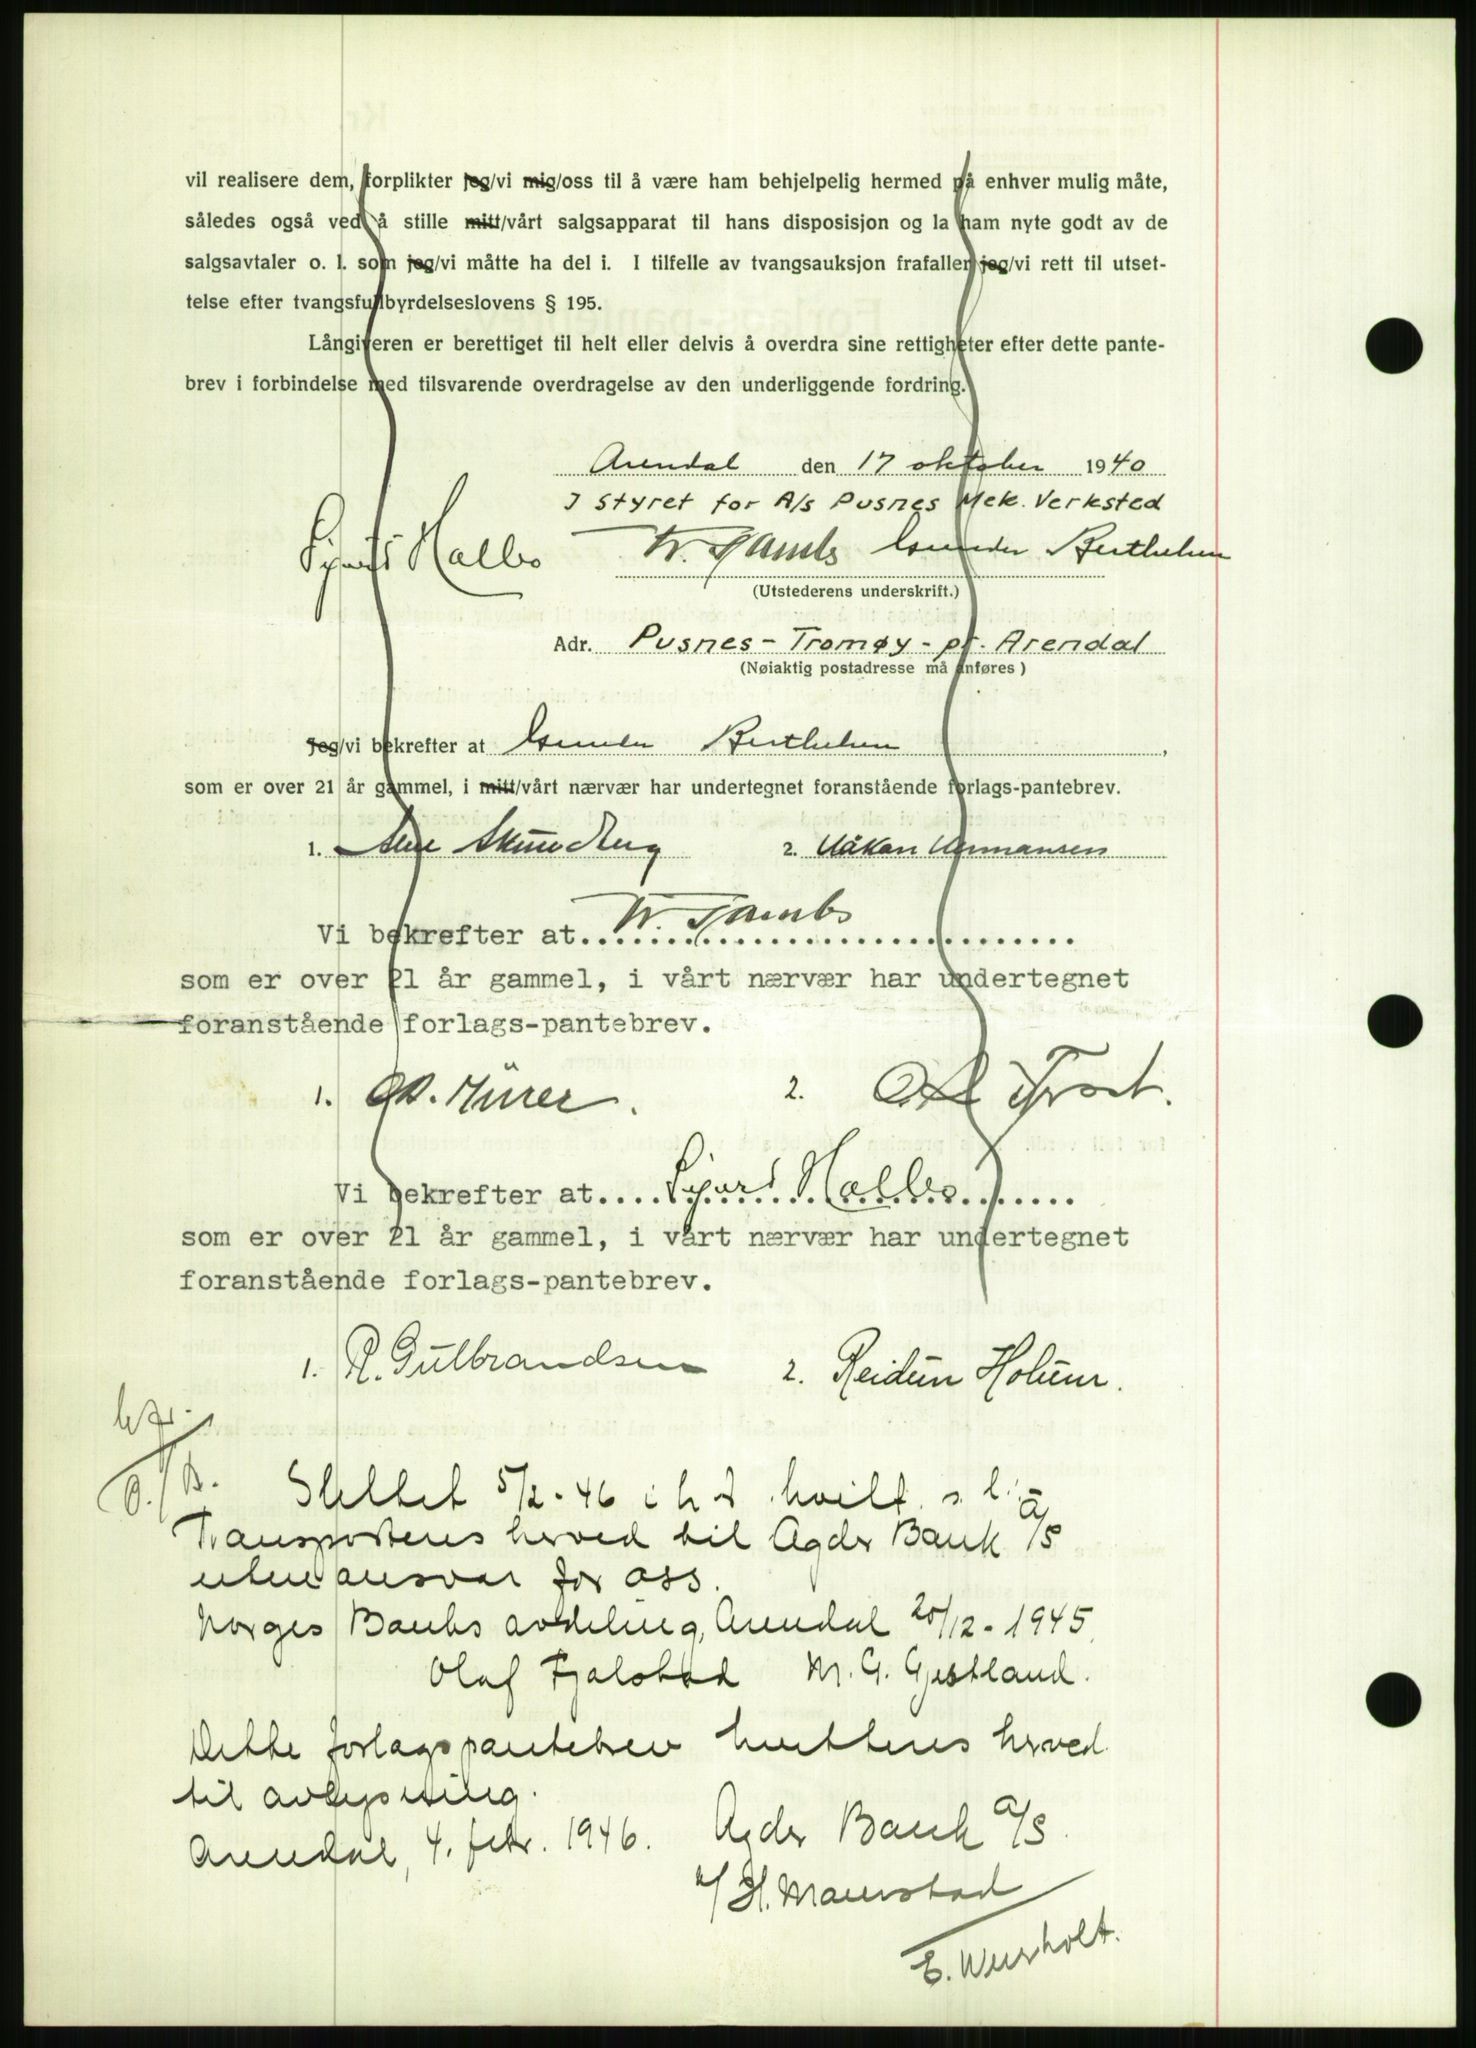 vil realisere dem, forplikter jeg/vi mig/oss til å være ham behjelpelig hermed på enhver mulig måte,
således også ved å stille mitt/vårt salgsapparat til hans disposisjon og la ham nyte godt av de
salgsavtaler o. l. som jeg/vi måtte ha del i. I tilfelle av tvangsauksjon frafaller jeg/vi rett til utset-
telse efter tvangsfullbyrdelseslovens § 195.
Långiveren er berettiget til helt eller delvis å overdra sine rettigheter efter dette pante-
brev i forbindelse med tilsvarende overdragelse av den underliggende fordring.
Arendal den 17 oktober 1940
I styret for A/s Pusnes Mek. Verksted
Sigurd Halbo W. Tambs Gunder Berthelsen
(Utstederens underskrift.)
Adr. Pusnes - Tromøy - pr. Arendal
(Nøiaktig postadresse må anføres)
Jeg/vi bekrefter at Gunder Berthelsen,
som er over 21 år gammel, i mitt/vårt nærvær har undertegnet foranstående forlags-pantebrev.
1. 2. Håkon Hermansen
Vi bekrefter at W. Tambs
som er over 21 år gammel, i vårt nærvær har undertegnet
foranstående forlags-pantebrev.
1. 2.
Vi bekrefter at Sigurd Halbo
som er over 21 år gammel, i vårt nærvær har undertegnet
foranstående forlags-pantebrev.
1. R. Gulbrandsen 2. Reidun Holum.
Slettet 5/2-46 i h t kvitt. s. l.
Transporteres herved til Agder Bank A/S
uten ansvar for oss.
Norges Banks avdeling, Arendal 20/12-1945.
Olaf Fjalstad M. G. Gjestland.
Dette forlagspantebrev kvitteres herved
til avlysning.
Arendal, 4. febr. 1946. Agder Bank A/S.
H. Maurstad
E. Weierholt.